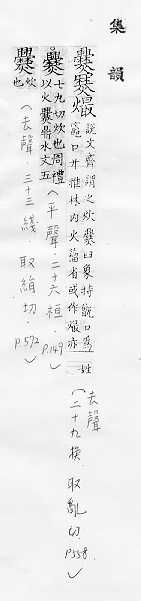 集韻
爨𤑽熶 說文齊謂之炊爨臼象持甑冂爲竈口廾推林内火籀省或作熶亦姓
(去聲 二十九換 取亂切 P.558)
爨 七九切炊也周禮以火爨鼎水文五
(平聲 二十六桓 P.149)
爨 炊也
(去聲 三十三綫 取絹切 P.572)